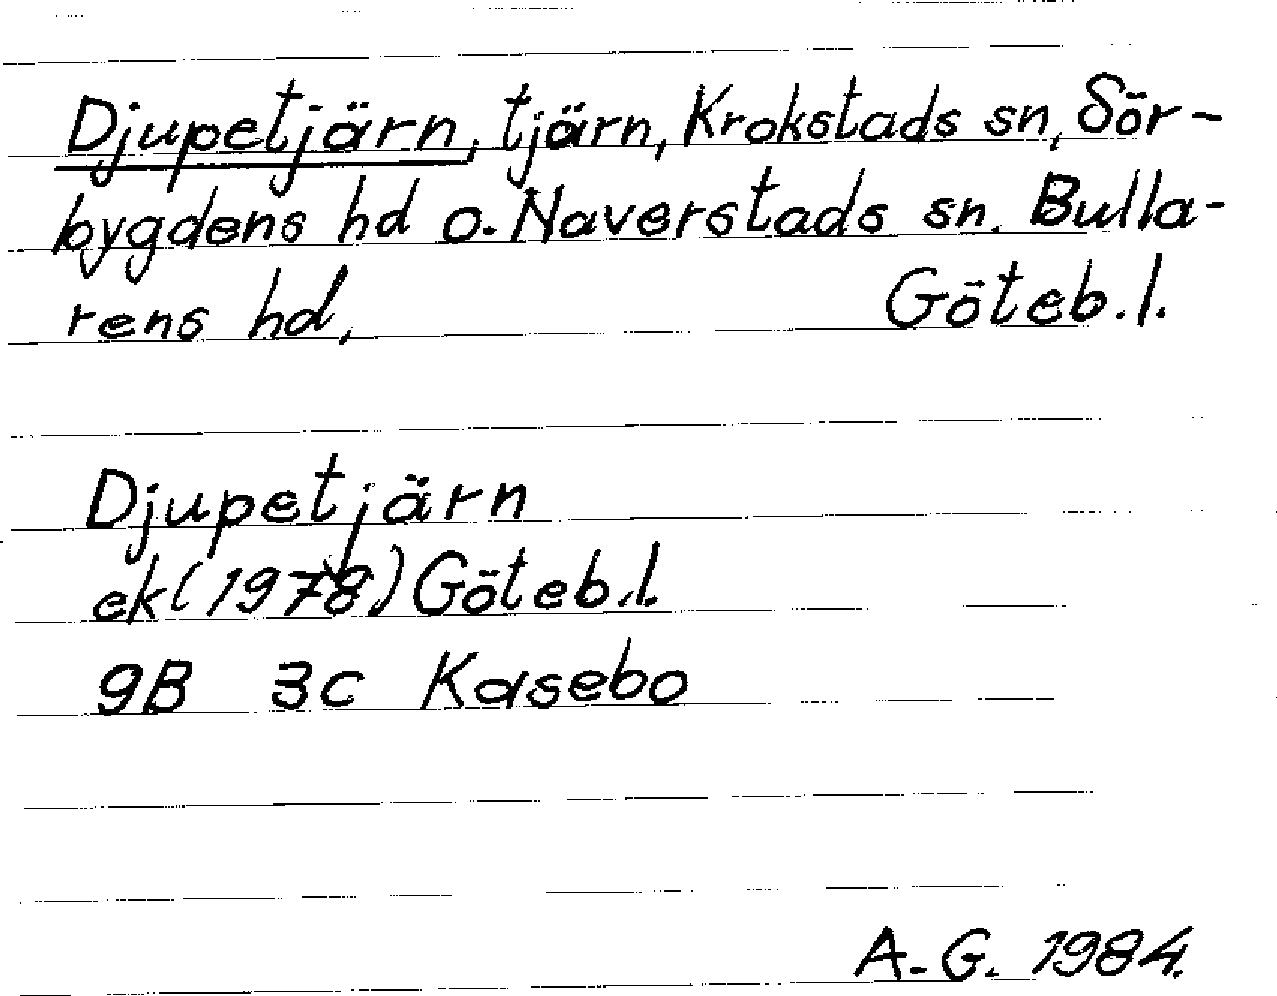 Djupetjärn, tjärn, Krokstads sn, Sör-
bygdens hd o. Naverstads sn. Bulla-
rens hd, Göteb.l.
Djupetjärn
ek (1978) Göteb.l.
9B 3c Kasebo
A.G. 1984.